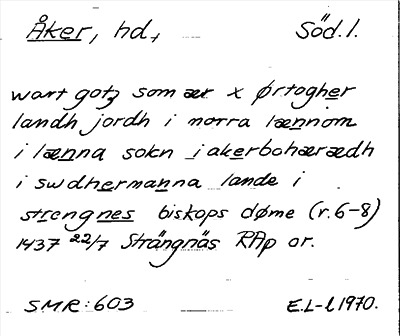 Åker, hd,                Söd. l.
wart gotz som ær x ørtogher
landh jordh i norra lænnom
i lænna sokn i akerbohærædh
i swdhermanna lande i
strengnes biskops døme (r. 6-8)
1437 22/7 Strängnäs RAp or.
SMR: 603                E. L-l 1970.